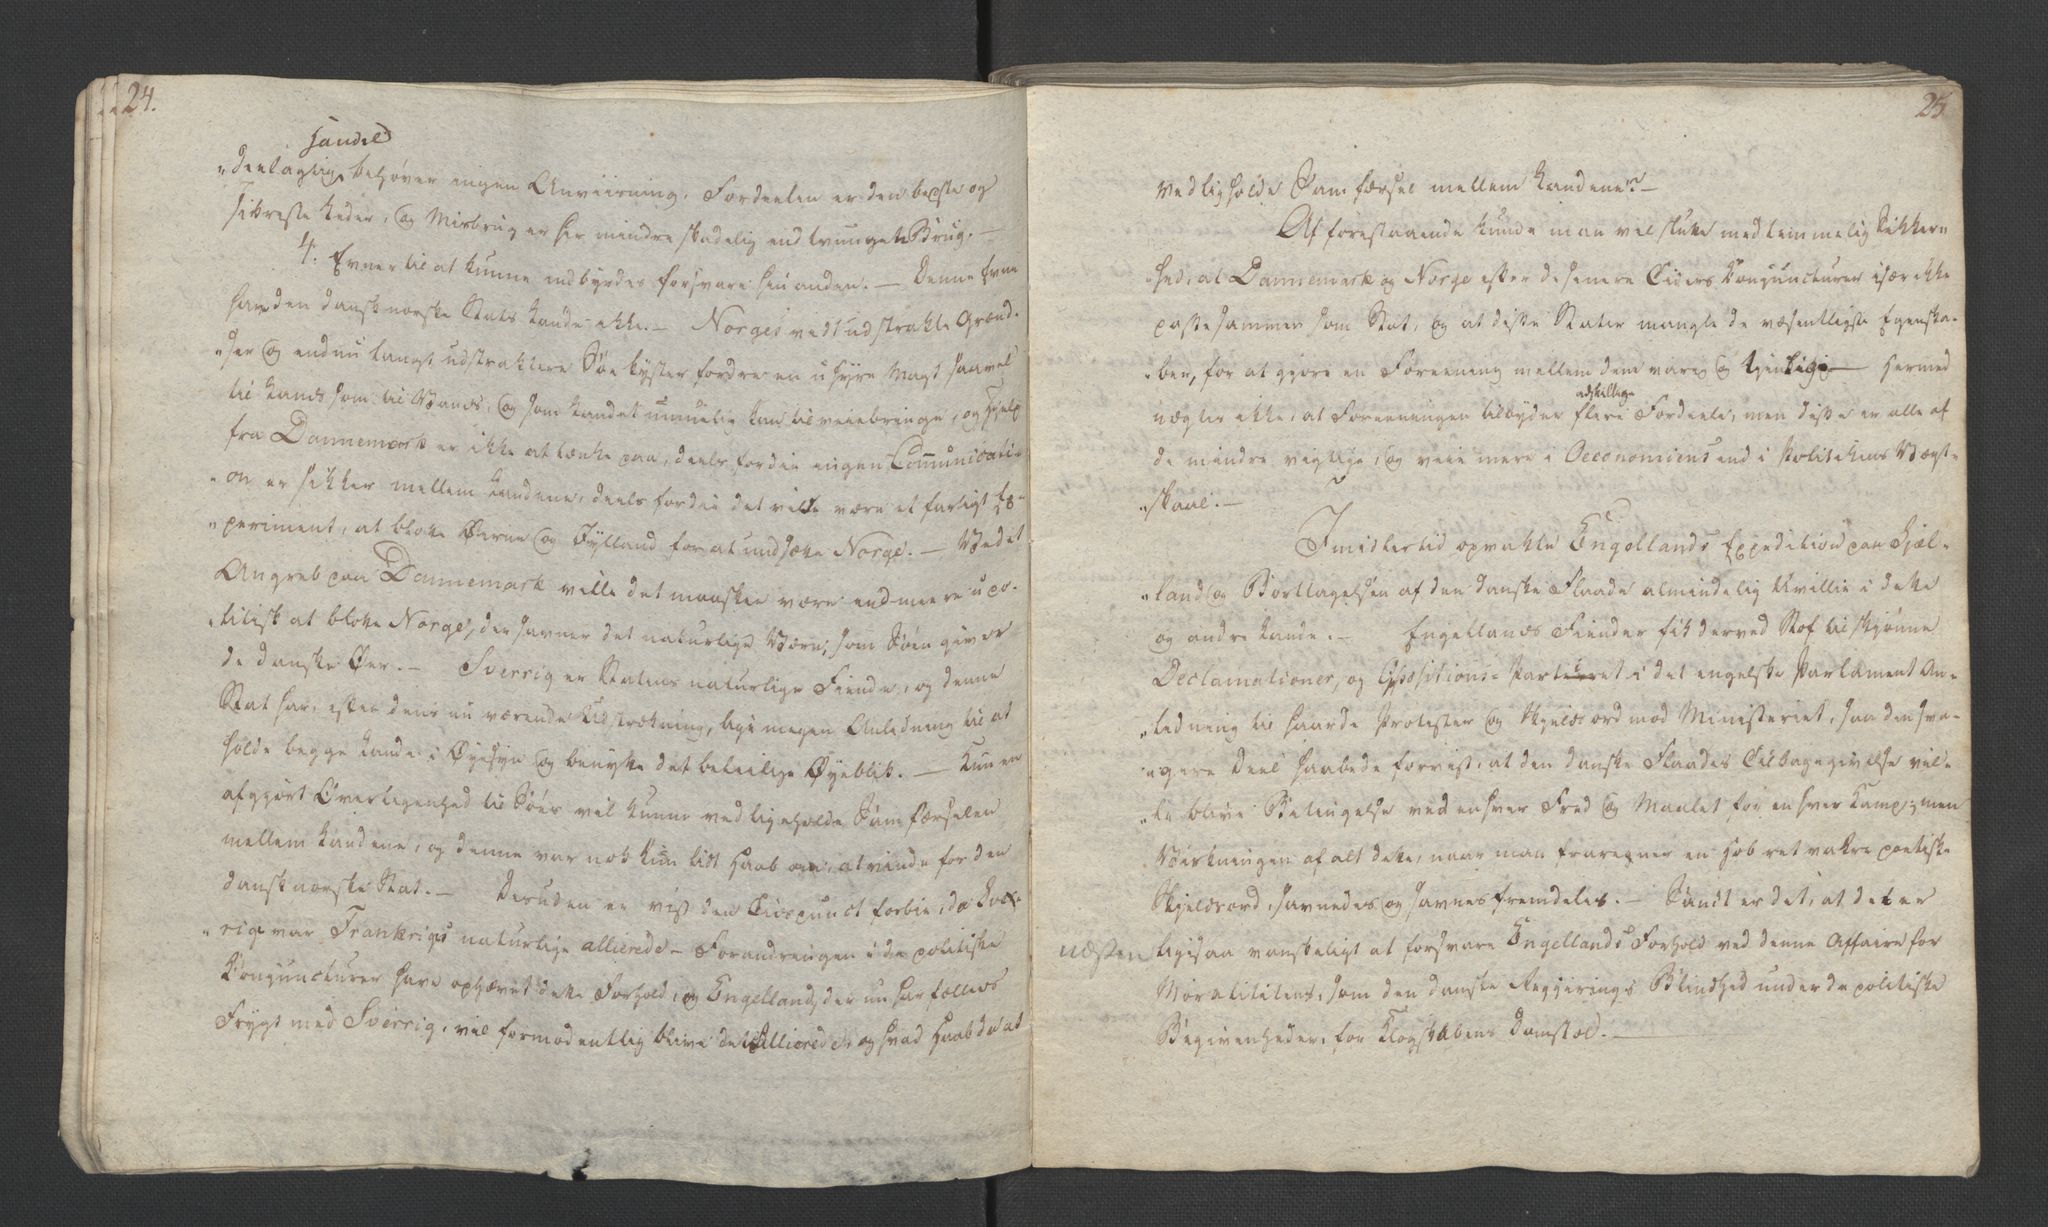 24.
Handel
„deelagtig behøver ingen Anviisning. Fordeelen er den beste og
sikreste Leder, og Misbrug er her mindre skadelig end tvungen Brug. —
4. Evner til at kunne indbyrdes forsvare hinanden. — Denne Evne
have den dansk norske Stats Lande ikke. — Norges vidt udstrakte Grænd-
„ser og endnu langt udstraktere Søe kyster fordre en uhyre Magt saavel
til Lands som til Vands, og som Landet umuelig kan tilveiebringe, og Hjelp
fra Dannemark er ikke at tænke paa, deels fordie ingen Communicati-
„on er sikker mellem Landene, deels fordie det ville være et farligt Ex-
„periment, at blotte Øerne og Jylland for at undsætte Norge. — Ved et
Angreb paa Dannemark ville det maaskee være end meere upo-
„litisk at blotte Norge, der savner det naturlige Værn, som Søen giver
de danske Øer. — Sverrig er Statens naturlige Fiende, og denne
Stat har, efter dens nu værende Udstrækning, lige megen Anledning til at
holde begge Lande i Øyesyn og benytte det beleilige Øyeblik. — Kun en
afgjort Overlegenhed til Søes vil kunne vedligeholde Samfærselen
mellem Landene, og denne var nok kun lidt Haab om at vinde for den
dansk norske Stat. — Desuden er vist den Tidspunct forbie, da Sver-
„rig var Frankrigs naturlige allierede — Forandringen i de politiske
Conjuncturer have ophævet dette Forhold, og Engelland, der nu har fælleds
Frygt med Sverrig, vil formodentlig blive dets Allierede, og hvad Haab da at
25
vedligholde Samfærsel mellem Landene? —
Af forestaaende kunde man vel slutte med temmelig Sikker-
„hed, at Dannemark og Norge efter de senere Tiders Conjuncturer især ikke
passe sammen som Stat, og at disse Stater mangle de væsentligste Egenska-
„ber, for at gjøre en Foreening mellem dem varig og — Hermed
adskillige
nægtes ikke, at Foreeningen tilbyder flere Fordeele, men disse er alle af
de mindre vigtige, og veie mere i Oeconomiens end i Politikens Vægt-
„skaal. —
Imidlertid opvakte Engellands Expedition paa Sjæl-
„land og Borttagelsen af den danske Flaade almindelig Uvillie i dette
og andre Lande. — Engellands Fiender fik derved Stof til skjønne
Declamationer, og Oppositions-Partiet i det engelske Parlament An-
„ledning til haarde Protester og Skjeldsord mod Ministeriet, saa den sva-
„gere Deel haabede forvist, at den danske Flaades Tilbagegivelse vil-
„le blive Betingelse ved enhver Fred og Maalet for enhver Kamp; men
Virkningen af alt dette, naar man fraregner en Hob ret vakre poetiske
Skjeldsord, savnedes og savnes fremdeles. — Sandt er det, at det er
næsten ligesaa vanskeligt at forsvare Engellands Forhold ved denne Affaire for
Moraliteten, som den danske Regjerings Blindhed under de politiske
Begivenheder, for Klogskabens Domstol. —